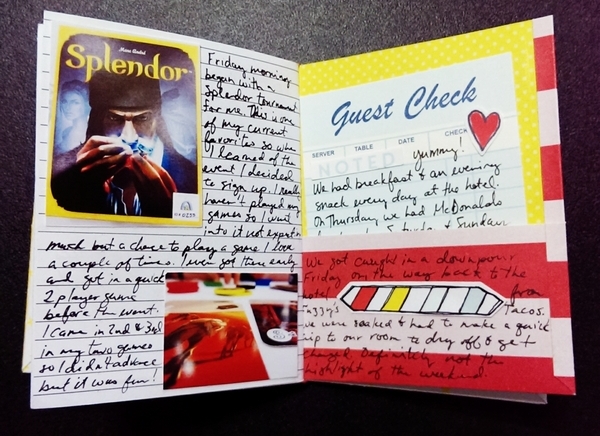 Marc André
Splendor
Friday morning
began with a
Splendor tournament
for me. This is one
of my current
favorites so when
I learned of the
event I decided
to sign up. I really
haven't played my
games so I went
into it not expecting
much but a chance to play a game I love
a couple of times. I even got there early
and got in a quick
2 player game
before the event.
I came in 2nd & 3rd
in my two games
so I didn't advance
but it was fun!
Guest Check
SERVER TABLE DATE CHECK
NOTED
yummy!
We had breakfast & an evening
snack every day at the hotel.
On Thursday we had McDonalds
Sunday
We got caught in a downpour
Friday on the way back to the
hotel from
Tacos.
we were soaked & had to make a quick
trip to our room to dry off & get
changed. Definitely not the
highlight of the weekend.